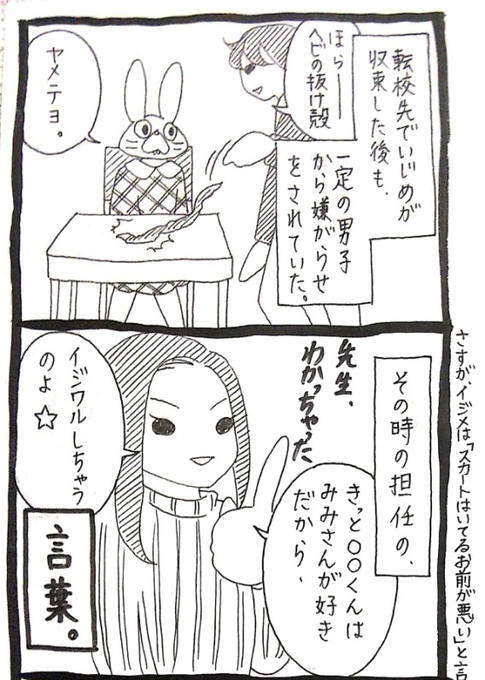 転校先でいじめが
収束した後も、
一定の男子
から嫌がらせ
をされていた。
ほらー
ヘビの抜け殻
ヤメテヨ。
その時の担任の、
先生、
わかっちゃった
きっと〇〇くんは
みみさんが好き
だから、
イジワルしちゃう
のよ☆
言葉。
さすがイジメは「スカートはいてるお前が悪い」と言